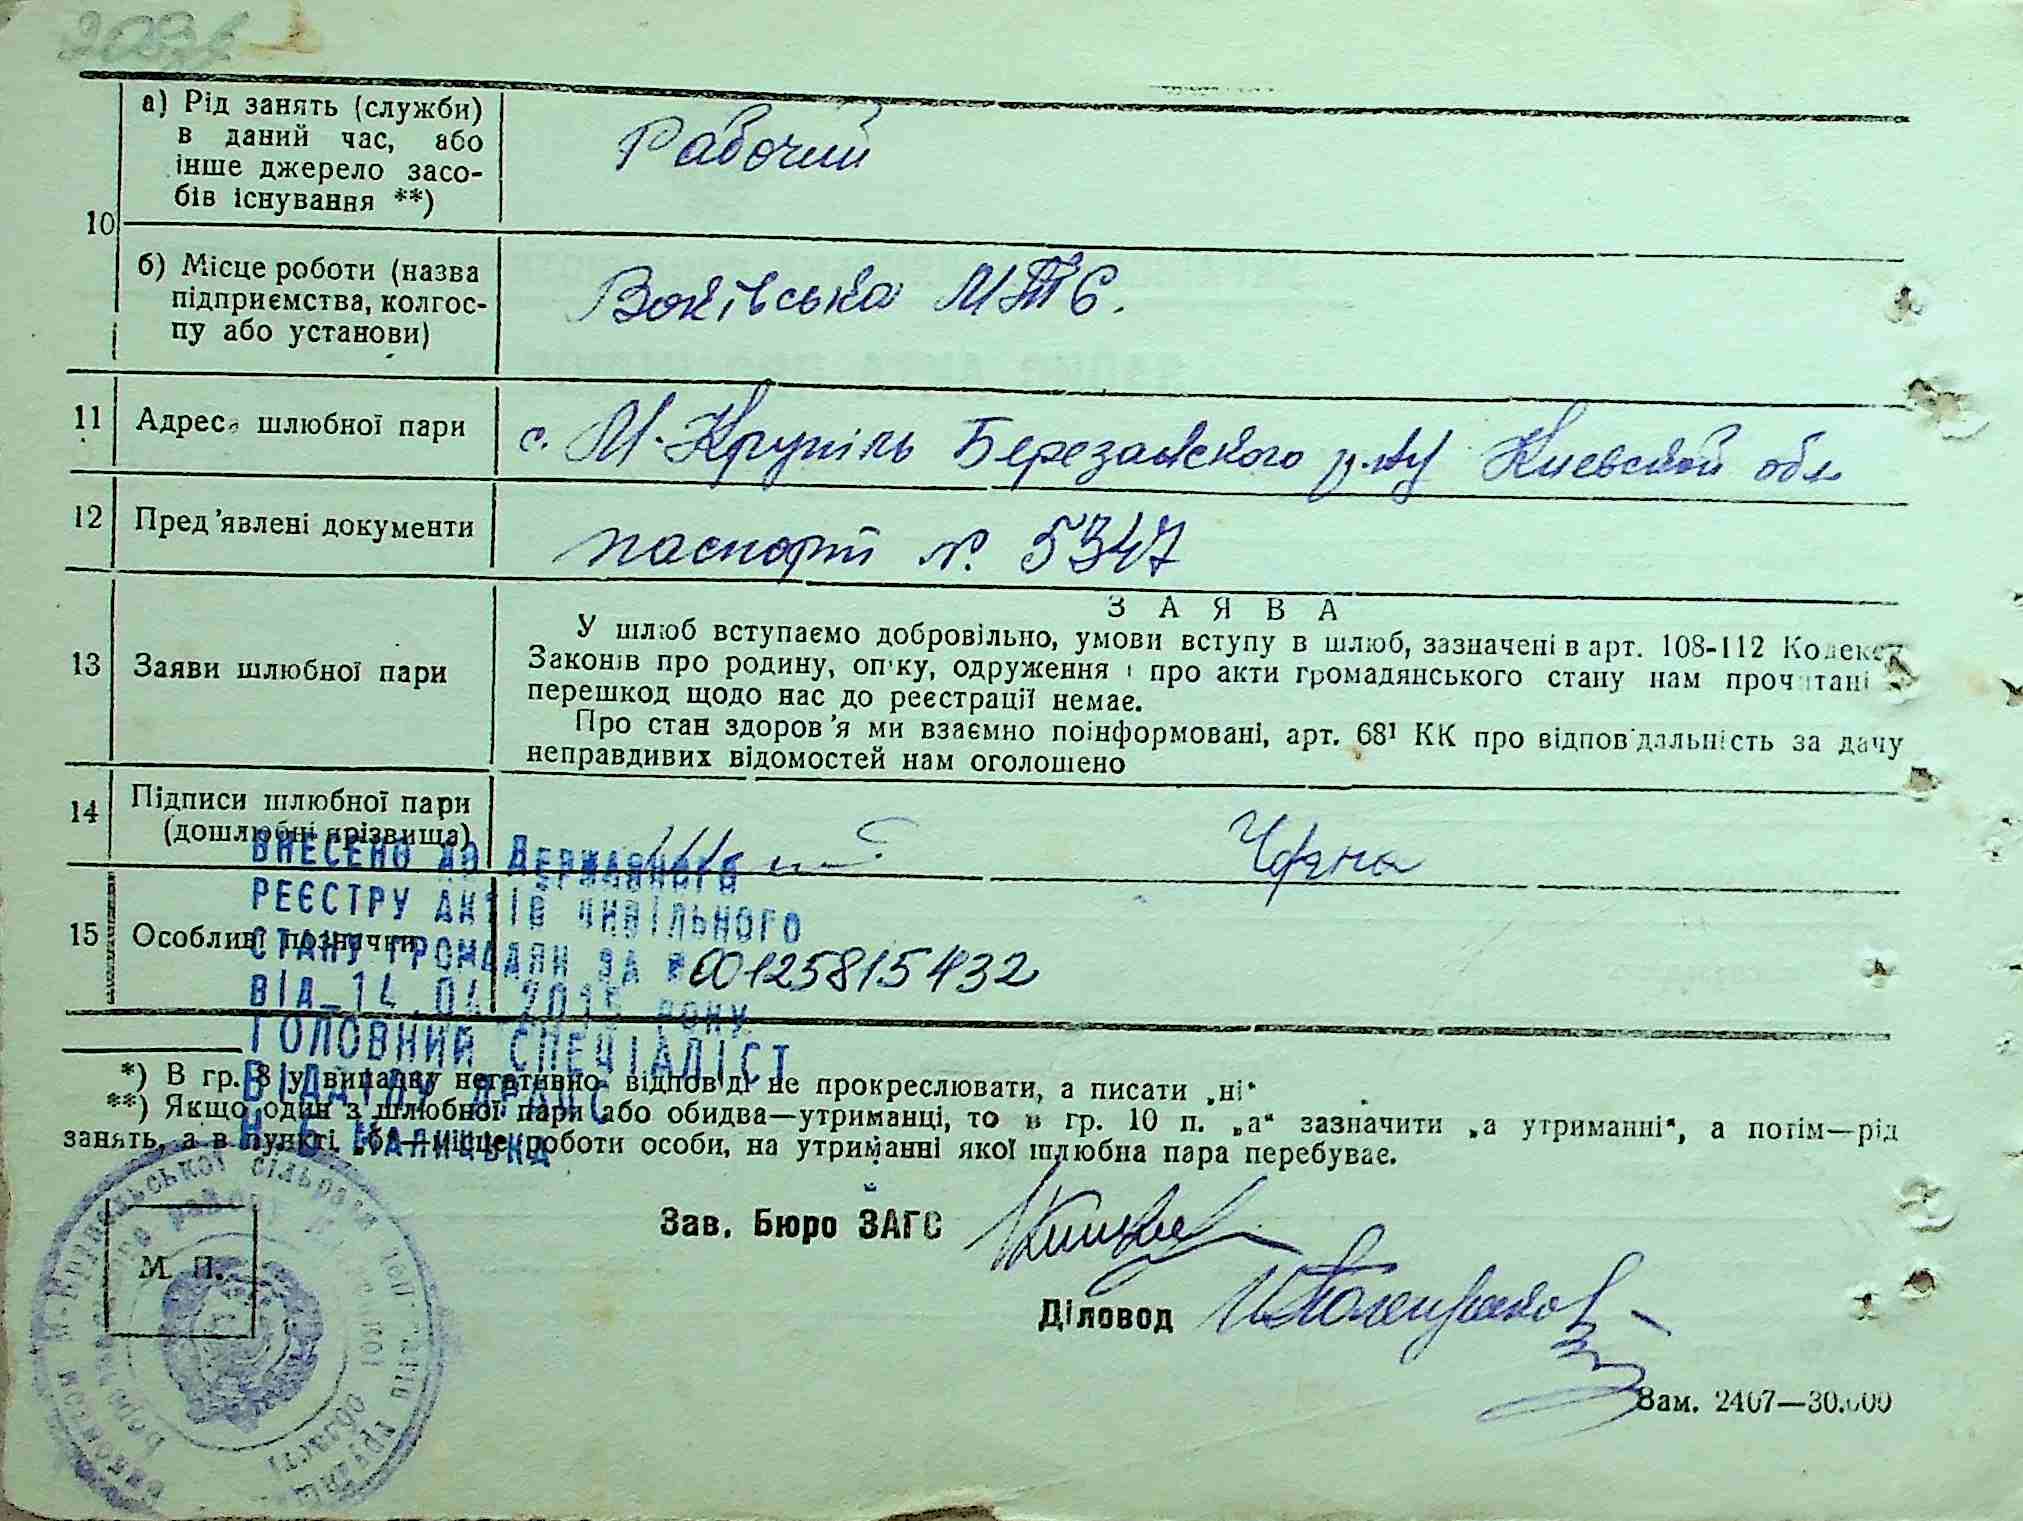 10
а) Рід занять (служби)
в даний час, або
інше джерело засо-
бів існування **)
Рабочий
б) Місце роботи (назва
підприємства, колгос-
пу або установи)
МТС.
11 Адреса шлюбної пари
с. М-Крупіль Березанского р-ну Киевской обл
12 Пред'явлені документи
паспорт №. 5347
13 Заяви шлюбної пари
ЗАЯВА
У шлюб вступаємо добровільно, умови вступу в шлюб, зазначені в арт. 108-112 Кодексу
Законів про родину, опіку, одруження і про акти громадянського стану нам прочитані
перешкод щодо нас до реєстрації немає.
Про стан здоров'я ми взаємно поінформовані, арт. 68¹ КК про відповідальність за дачу
неправдивих відомостей нам оголошено
14 Підписи шлюбної пари
(дошлюбні прізвища)
15 Особливі позначки
ВНЕСЕНО ДО ДЕРЖАВНОГО
РЕЄСТРУ АКТІВ ЦИВІЛЬНОГО
СТАНУ ГРОМАДЯН ЗА № 00125815432
ВІД 14.04 2015 РОКУ
ГОЛОВНИЙ СПЕЦІАЛІСТ
ВІДДІЛУ ДРАЦС
*) В гр. 8 у випадку негативної відповіді не прокреслювати, а писати „ні“
**) Якщо один з шлюбної пари або обидва—утриманці, то в гр. 10 п. „а“ зазначити „а утриманні“, а потім—рід
занять, а в пункті „б“—місце роботи особи, на утриманні якої шлюбна пара перебуває.
Зав. Бюро ЗАГС
М. П.
Діловод
Зам. 2407—30.000